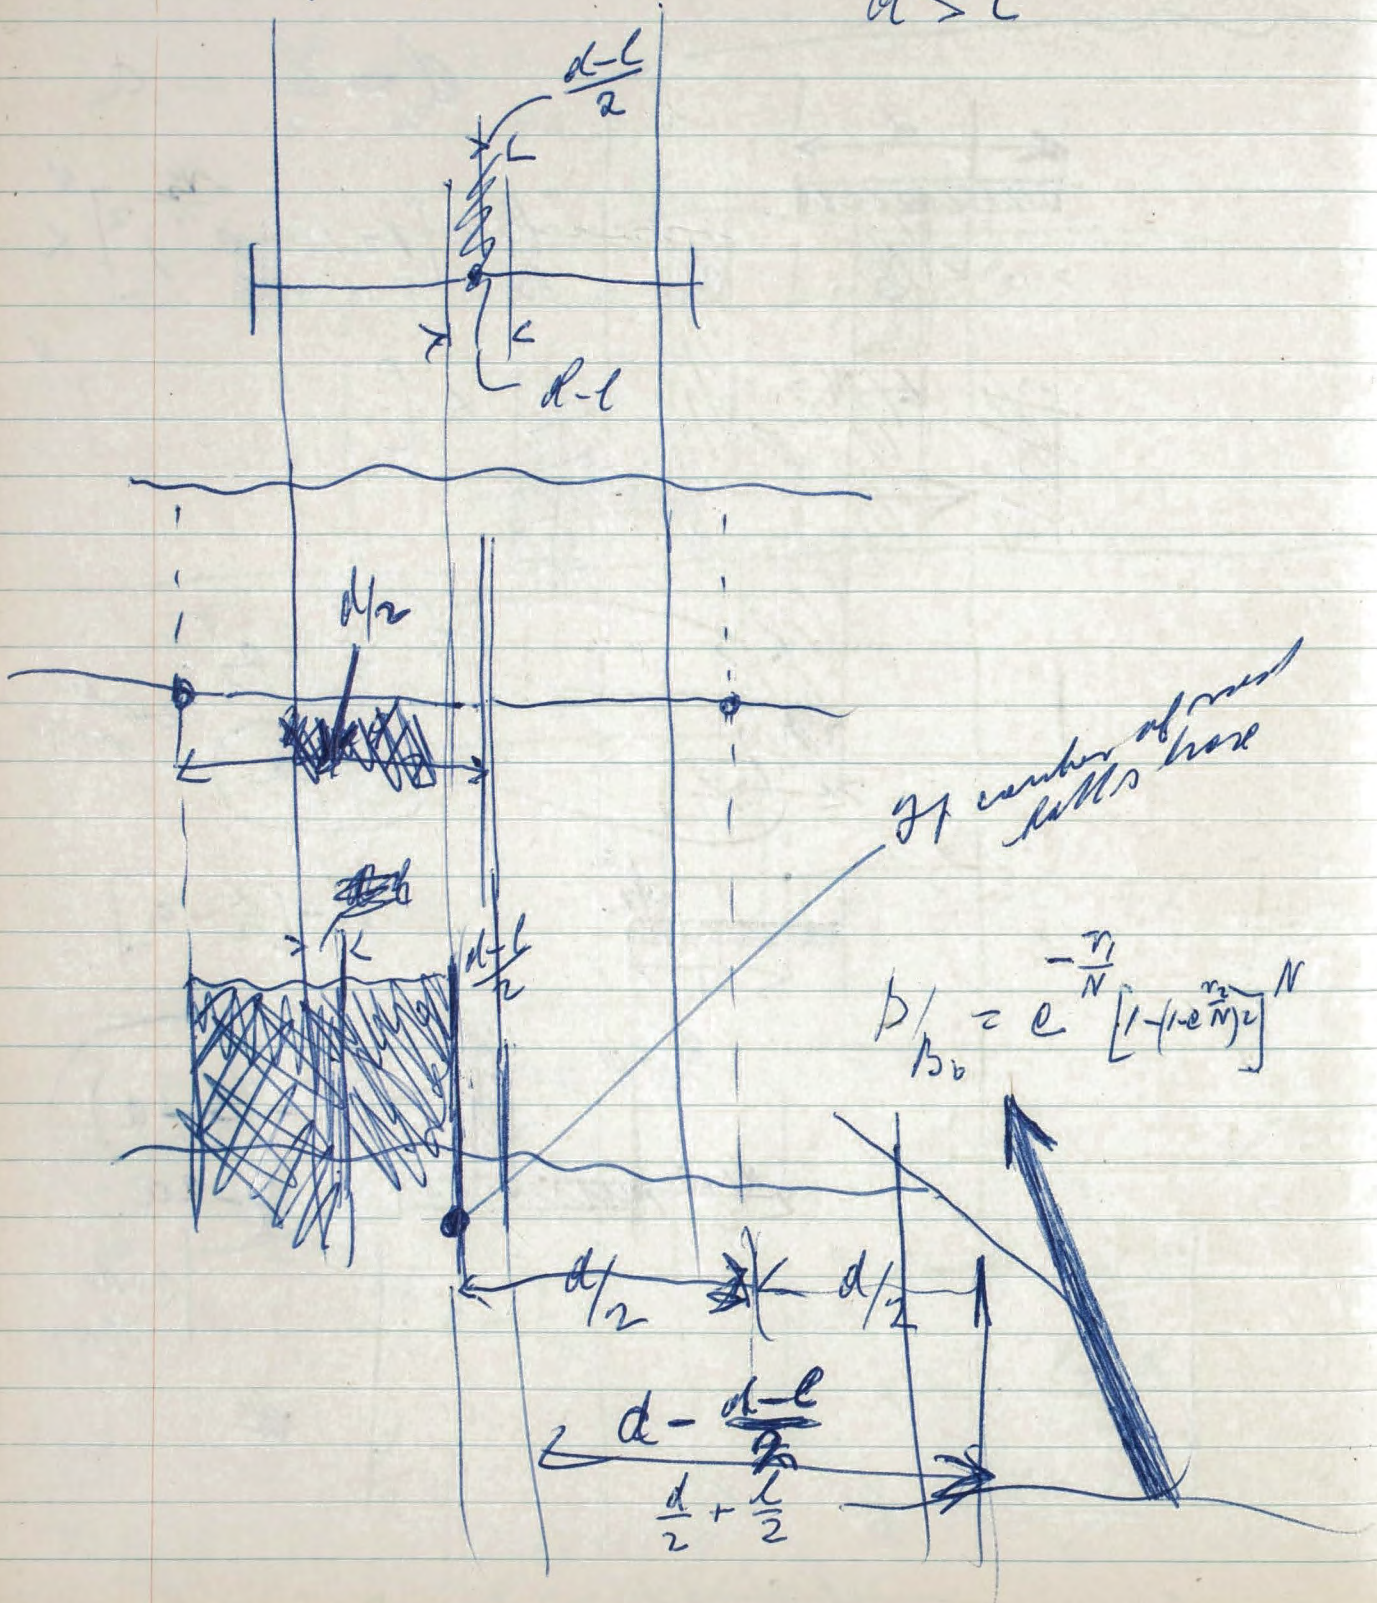 d > l
d-l/2
d-l
d/2
d-l/2
If center of rod
falls here
B/B₀ = e^{-r₁/N} [1-(1-e^{r₂/N})2]^N
d/2 d/2
d - d-l/2
d/2 + l/2